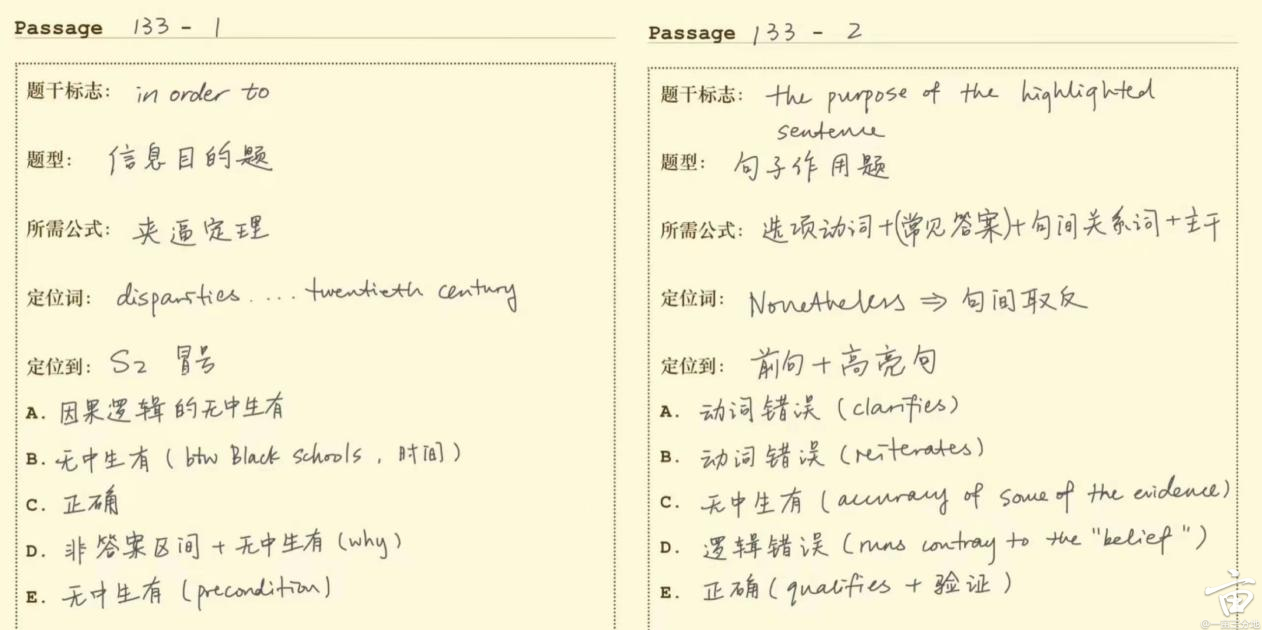 Passage 133 - 1
题干标志: in order to
题型: 信息目的题
所需公式: 夹逼定理
定位词: disparities .... twentieth century
定位到: S2 冒号
A. 因果逻辑的无中生有
B. 无中生有 (btw Black schools, 时间)
C. 正确
D. 非答案区间 + 无中生有 (why)
E. 无中生有 (precondition)
Passage 133 - 2
题干标志: the purpose of the highlighted
sentence
题型: 句子作用题
所需公式: 选项动词+(常见答案)+句间关系词+主干
定位词: Nonetheless ⇒ 句间取反
定位到: 前句 + 高亮句
A. 动词错误 (clarifies)
B. 动词错误 (reiterates)
C. 无中生有 (accuracy of some of the evidence)
D. 逻辑错误 (runs contray to the "belief")
E. 正确 (qualifies + 验证)
亩
@一亩三分地